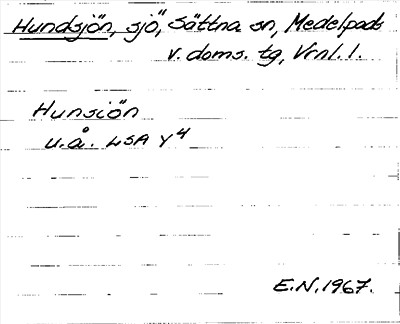 Hundsjön, sjö, Sättna sn, Medelpads
v. doms. tg, Vrnl. l.
Hunsiön
u.å. LSA Y4
E.N. 1967.